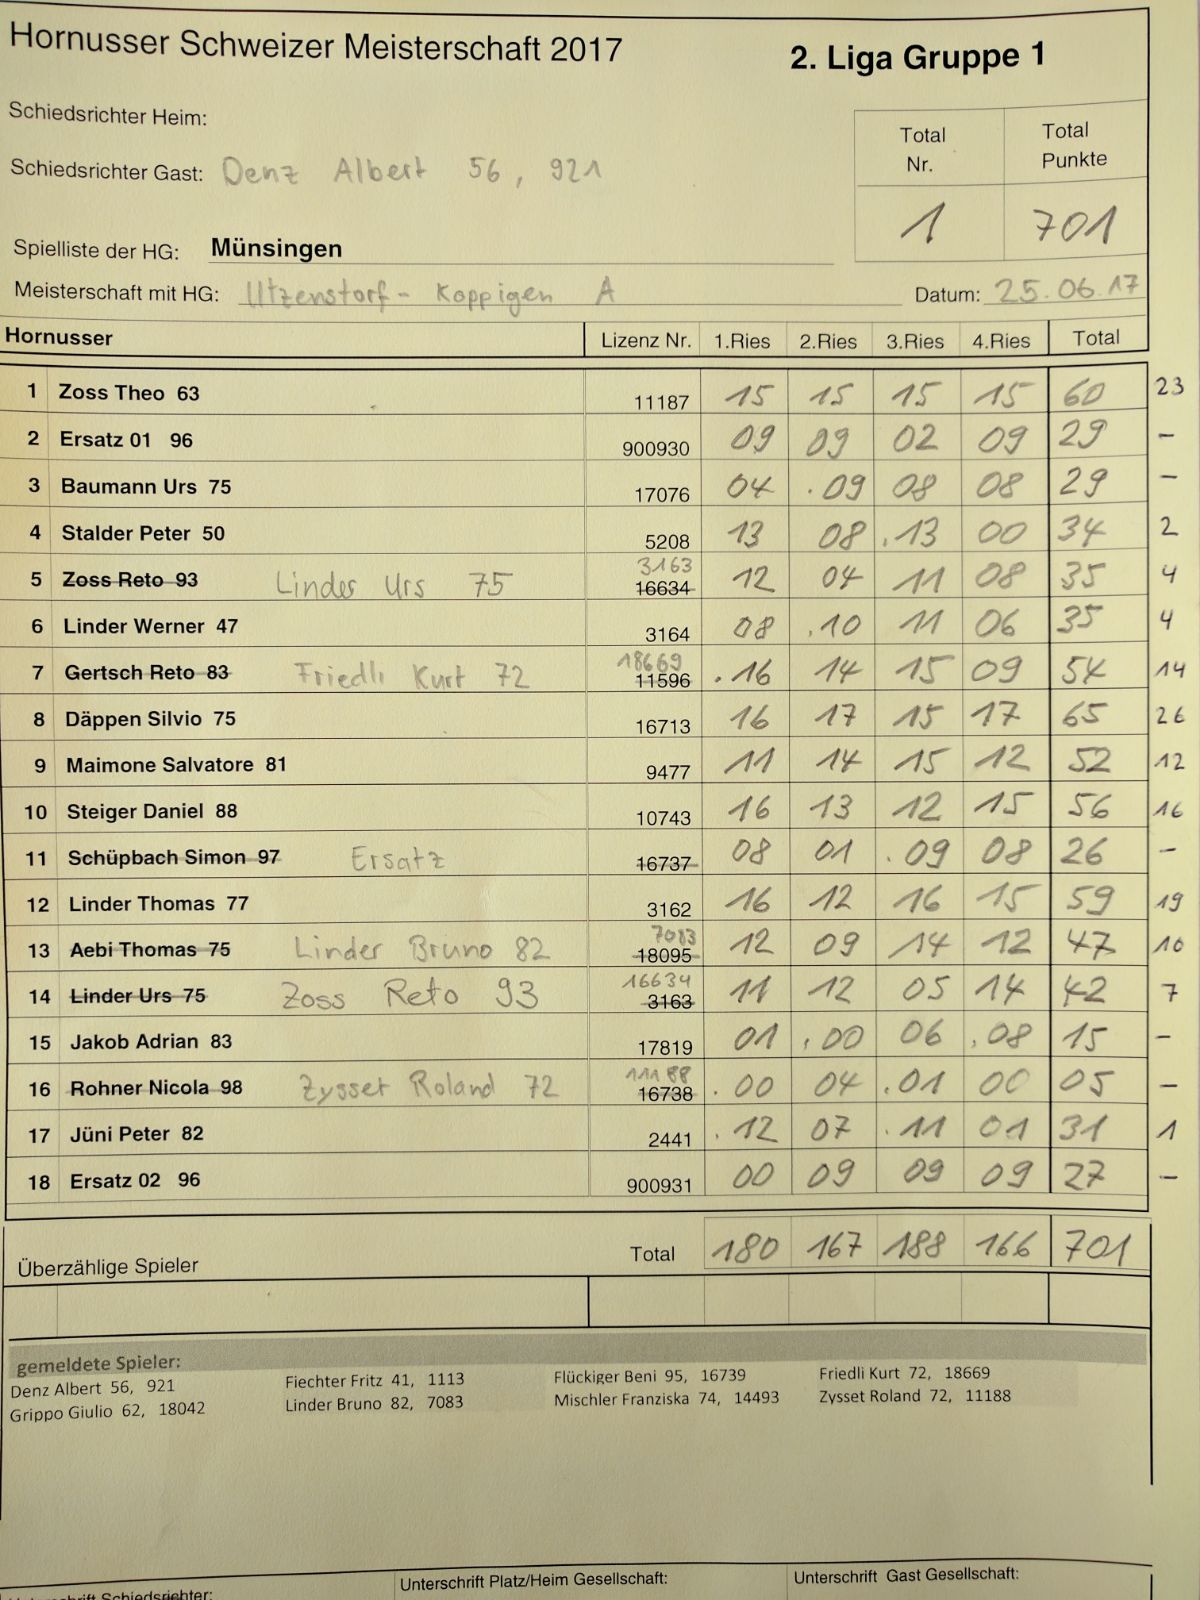 Hornusser Schweizer Meisterschaft 2017 2. Liga Gruppe 1
Schiedsrichter Heim:
Total Nr. Total Punkte
Schiedsrichter Gast: Denz Albert 56, 921
1 701
Spielliste der HG: Münsingen
Meisterschaft mit HG: Utzenstorf - Koppigen A Datum: 25.06.17
Hornusser Lizenz Nr. 1.Ries 2.Ries 3.Ries 4.Ries Total
1 Zoss Theo 63 11187 15 15 15 15 60 23
2 Ersatz 01 96 900930 09 09 02 09 29 –
3 Baumann Urs 75 17076 04 .09 08 08 29 –
4 Stalder Peter 50 5208 13 08 .13 00 34 2
5 Zoss Reto 93 Linder Urs 75 3163 16634 12 04 11 08 35 4
6 Linder Werner 47 3164 08 .10 11 06 35 4
7 Gertsch Reto 83 Friedli Kurt 72 18669 11596 .16 14 15 09 54 14
8 Däppen Silvio 75 16713 16 17 15 17 65 26
9 Maimone Salvatore 81 9477 11 14 15 12 52 12
10 Steiger Daniel 88 10743 16 13 12 15 56 16
11 Schüpbach Simon 97 Ersatz 16737 08 01 .09 08 26 –
12 Linder Thomas 77 3162 16 12 16 15 59 19
13 Aebi Thomas 75 Linder Bruno 82 7083 18095 12 09 14 12 47 10
14 Linder Urs 75 Zoss Reto 93 16634 3163 11 12 05 14 42 7
15 Jakob Adrian 83 17819 01 .00 06 .08 15 –
16 Rohner Nicola 98 Zysset Roland 72 11188 16738 .00 04 .01 00 05 –
17 Jüni Peter 82 2441 .12 07 .11 01 31 1
18 Ersatz 02 96 900931 00 09 09 09 27 –
Überzählige Spieler Total 180 167 188 166 701
gemeldete Spieler:
Denz Albert 56, 921 Fiechter Fritz 41, 1113 Flückiger Beni 95, 16739 Friedli Kurt 72, 18669
Grippo Giulio 62, 18042 Linder Bruno 82, 7083 Mischler Franziska 74, 14493 Zysset Roland 72, 11188
Unterschrift Schiedsrichter: Unterschrift Platz/Heim Gesellschaft: Unterschrift Gast Gesellschaft: